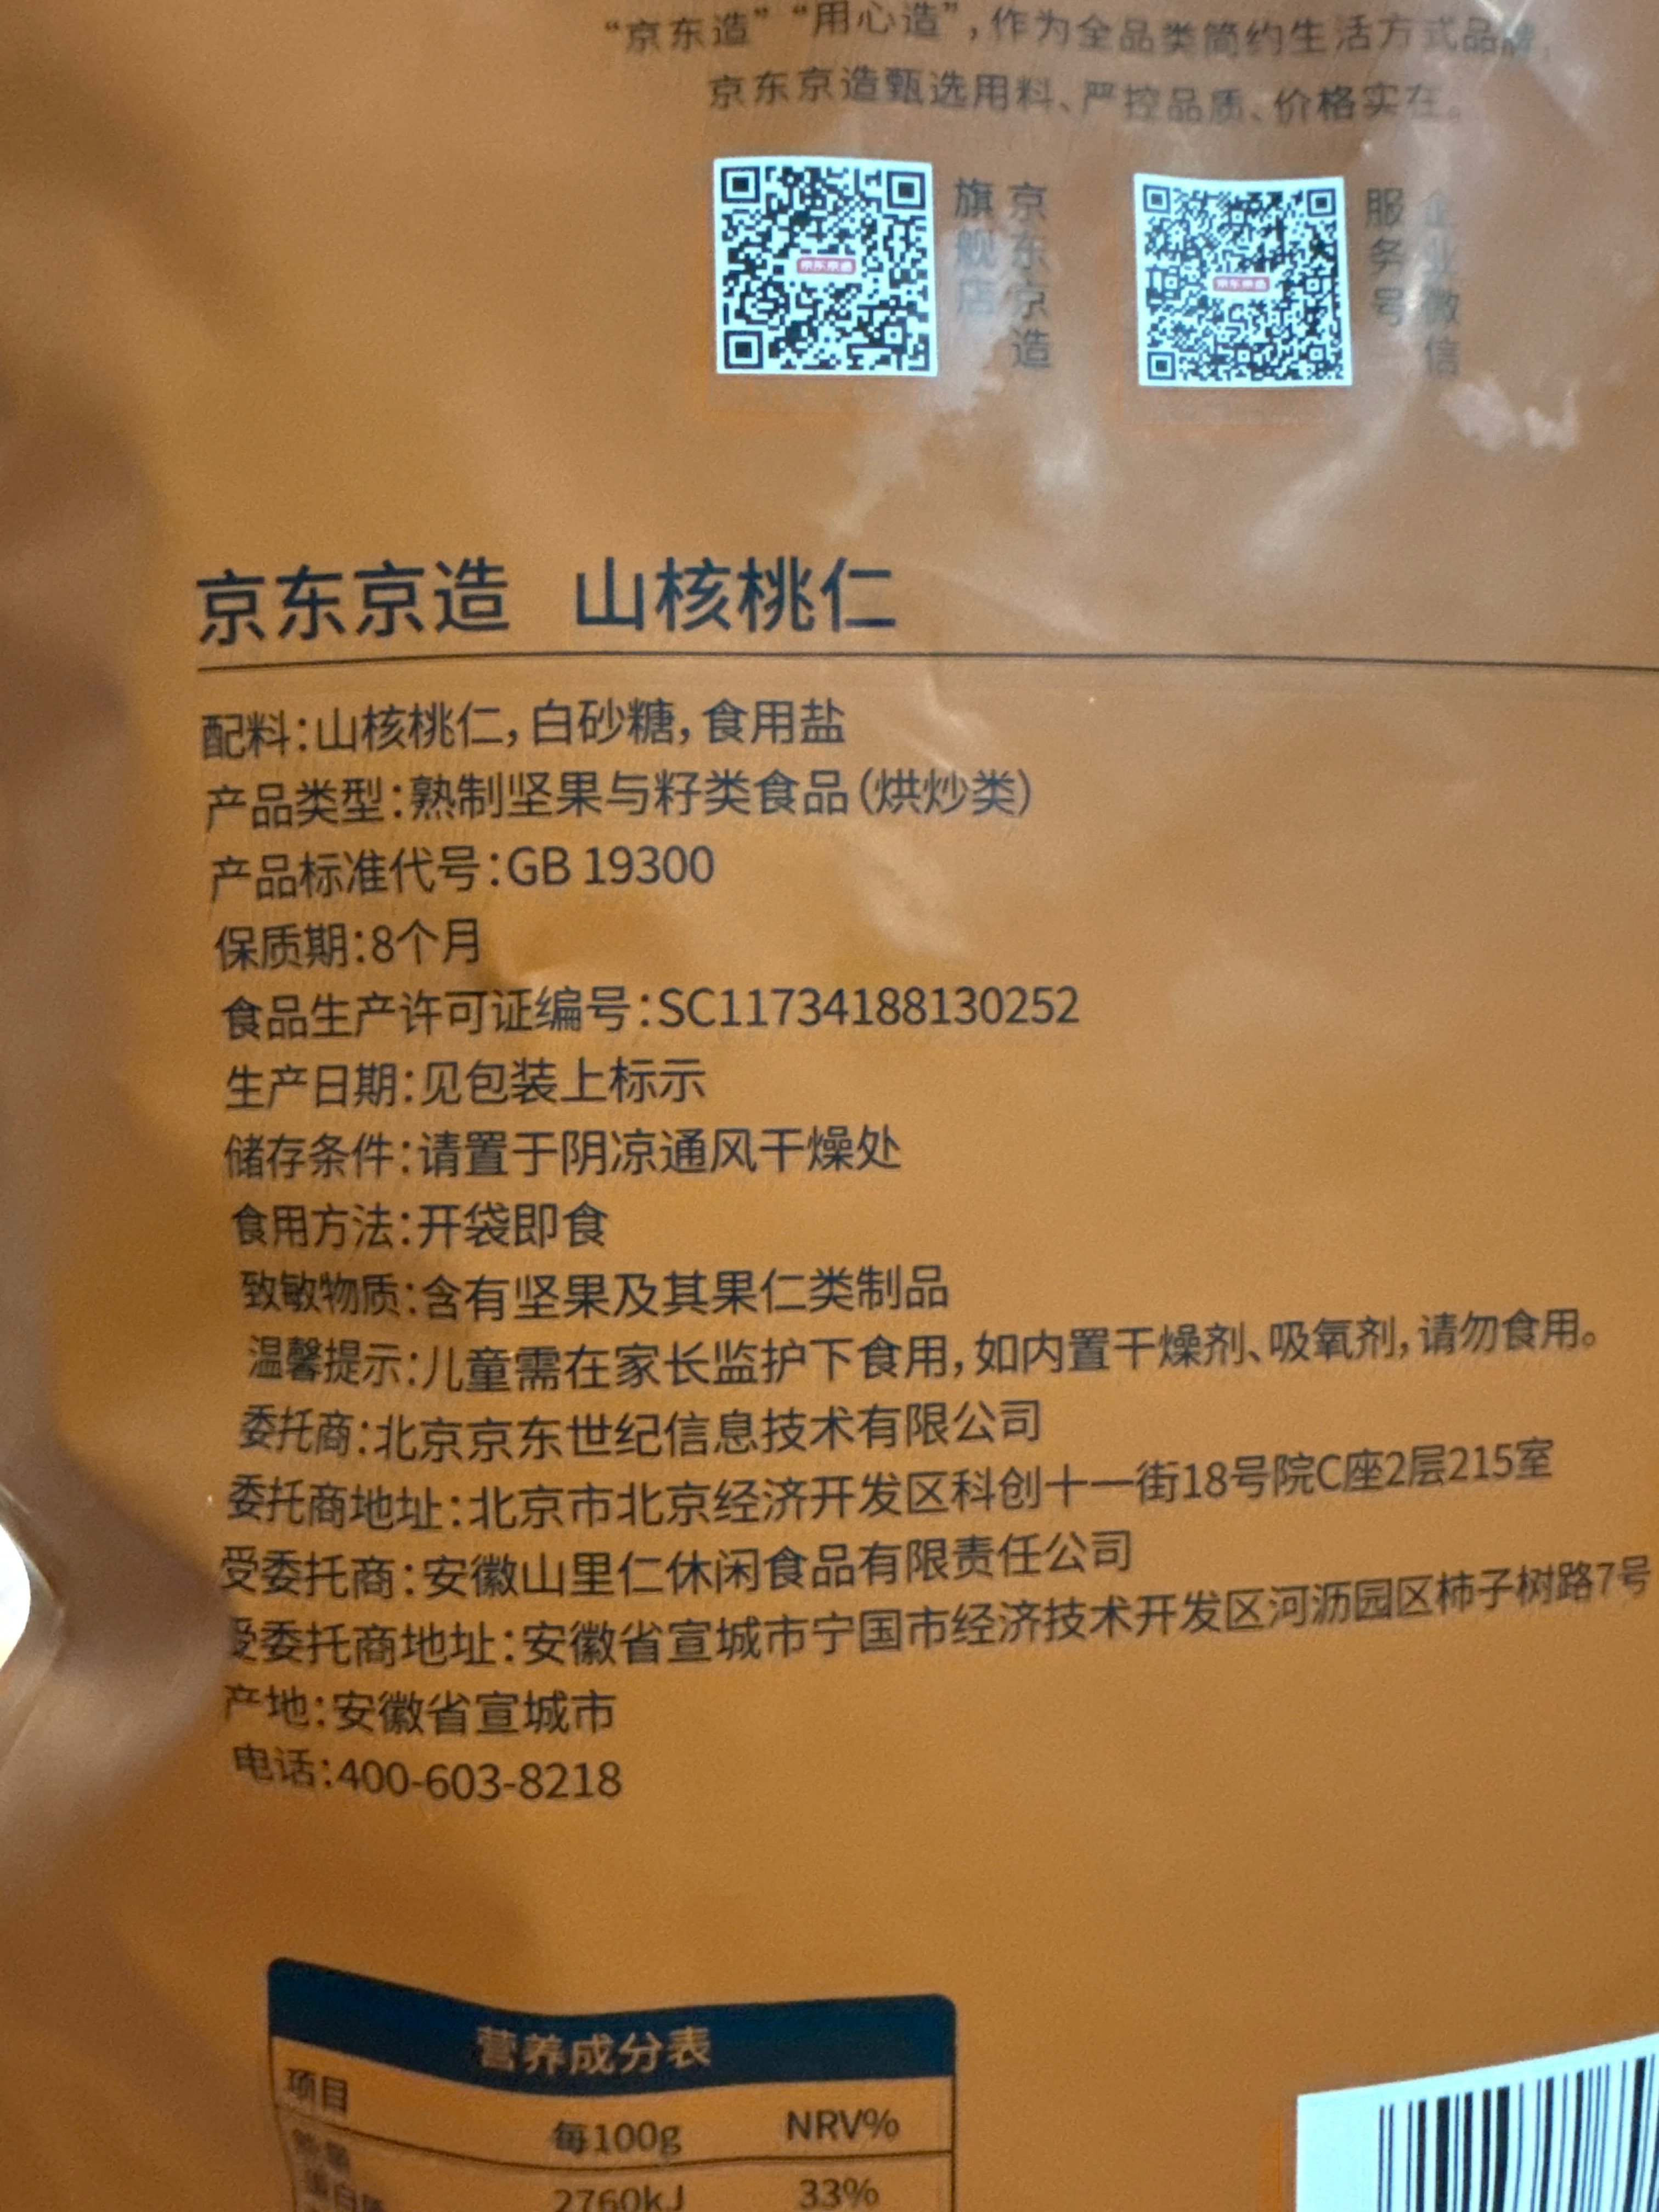 “京东造”“用心造”，作为全品类简约生活方式品牌，
京东京造甄选用料、严控品质、价格实在。
京东京造
旗舰店
企业微信
服务号
京东京造
京东京造
京东京造 山核桃仁
配料：山核桃仁，白砂糖，食用盐
产品类型：熟制坚果与籽类食品（烘炒类）
产品标准代号：GB 19300
保质期：8个月
食品生产许可证编号：SC11734188130252
生产日期：见包装上标示
储存条件：请置于阴凉通风干燥处
食用方法：开袋即食
致敏物质：含有坚果及其果仁类制品
温馨提示：儿童需在家长监护下食用，如内置干燥剂、吸氧剂，请勿食用。
委托商：北京京东世纪信息技术有限公司
委托商地址：北京市北京经济开发区科创十一街18号院C座2层215室
受委托商：安徽山里仁休闲食品有限责任公司
受委托商地址：安徽省宣城市宁国市经济技术开发区河沥园区柿子树路7号
产地：安徽省宣城市
电话：400-603-8218
营养成分表
项目 每100g NRV%
能量 2760kJ 33%
蛋白质